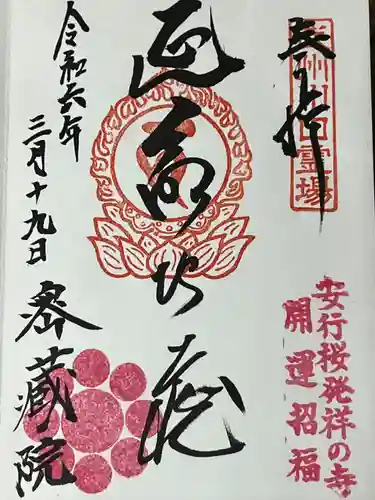 奉拝
霊場
安行桜発祥の寺
開運招福
延命地蔵
令和六年
三月十九日
密蔵院